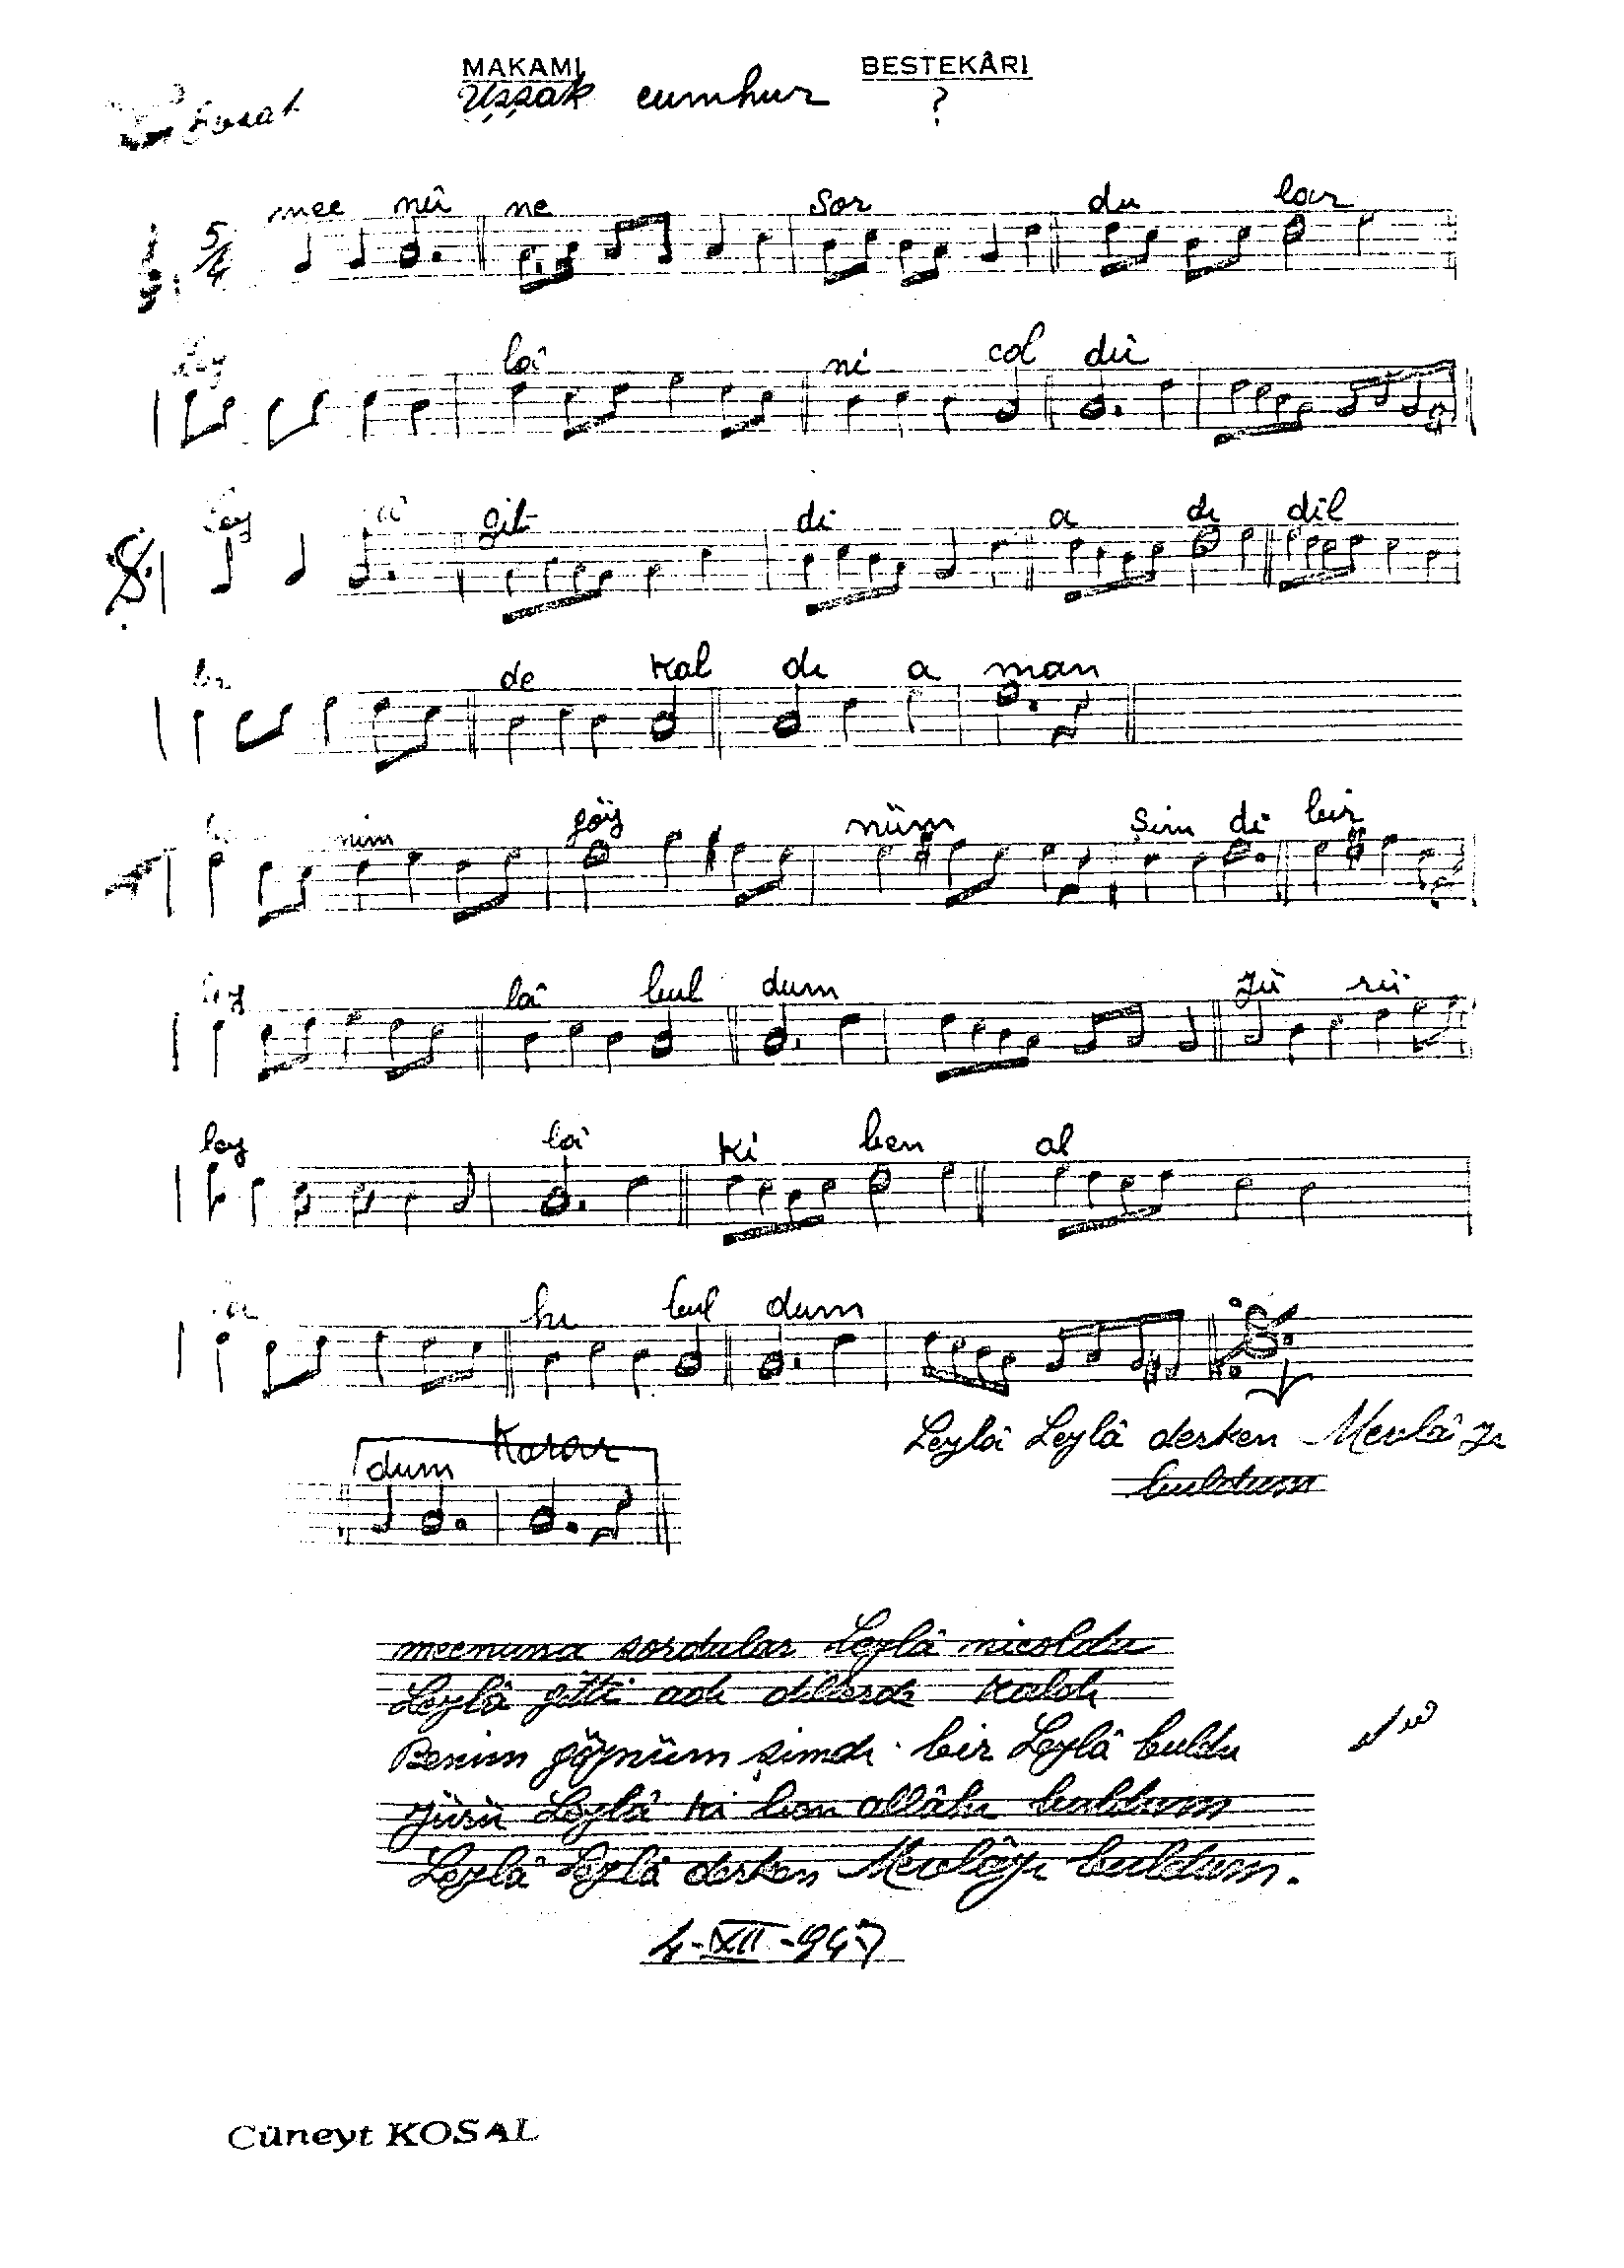 MAKAMI BESTEKÂRI
Uşşak cumhur ?
Kosal
5/4 mec nû ne sor du lar
ley lâ ni col dû
ley lâ git di a dı dil
ler de kal dı a man
be nim göy nüm şim di bir
ley lâ bul dum yü rü
ley lâ ki ben al
la hı bul dum
Leylâ Leylâ derken Mevlâ yı
buldum
dum Karar
mecnuna sordular Leylâ nicoldu
Leylâ gitti adı dillerde kaldı
Benim göynüm şimdi bir Leylâ buldu
yürü Leylâ ki ben allâhı buldum
Leylâ Leylâ derken Mevlâyı buldum.
4-XII-947
Cüneyt KOSAL